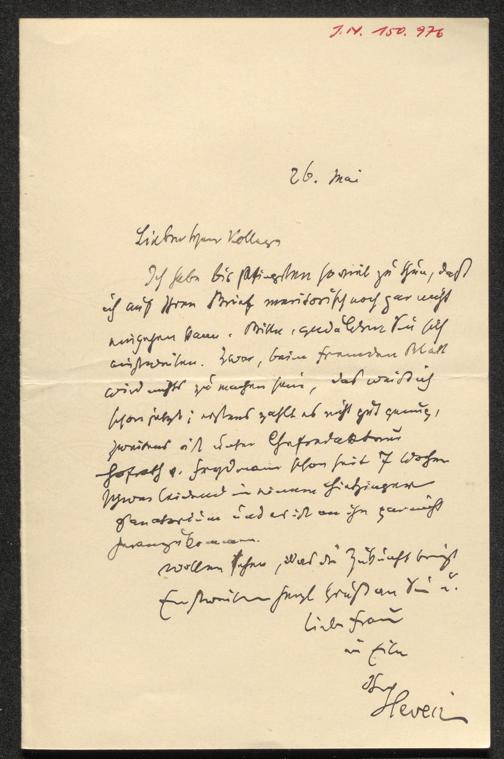 J.N. 150.976
26. Mai
Lieber Herr Kollege
Ich habe bis Pfingsten so viel zu thun, daß
ich auf Ihren Brief meritorisch noch gar nicht
eingehen kann. Bitte, gedulden Sie sich
einstweilen. Zwar, beim Fremdenblatt
wird nichts zu machen sein, das weiß ich
schon jetzt; erstens zahlt es nicht gut genug,
zweitens ist unser Chefredakteur
Hofrath v. Frydmann schon seit 7 Wochen
schwer leidend in einem Hietzinger
Sanatorium und es ist an ihn gar nicht
heranzukommen.
Wollen sehen, was die Zukunft bringt
Einstweilen herzl Grüße an Sie u.
liebe Frau
in Eile
Ihr
Hevesi